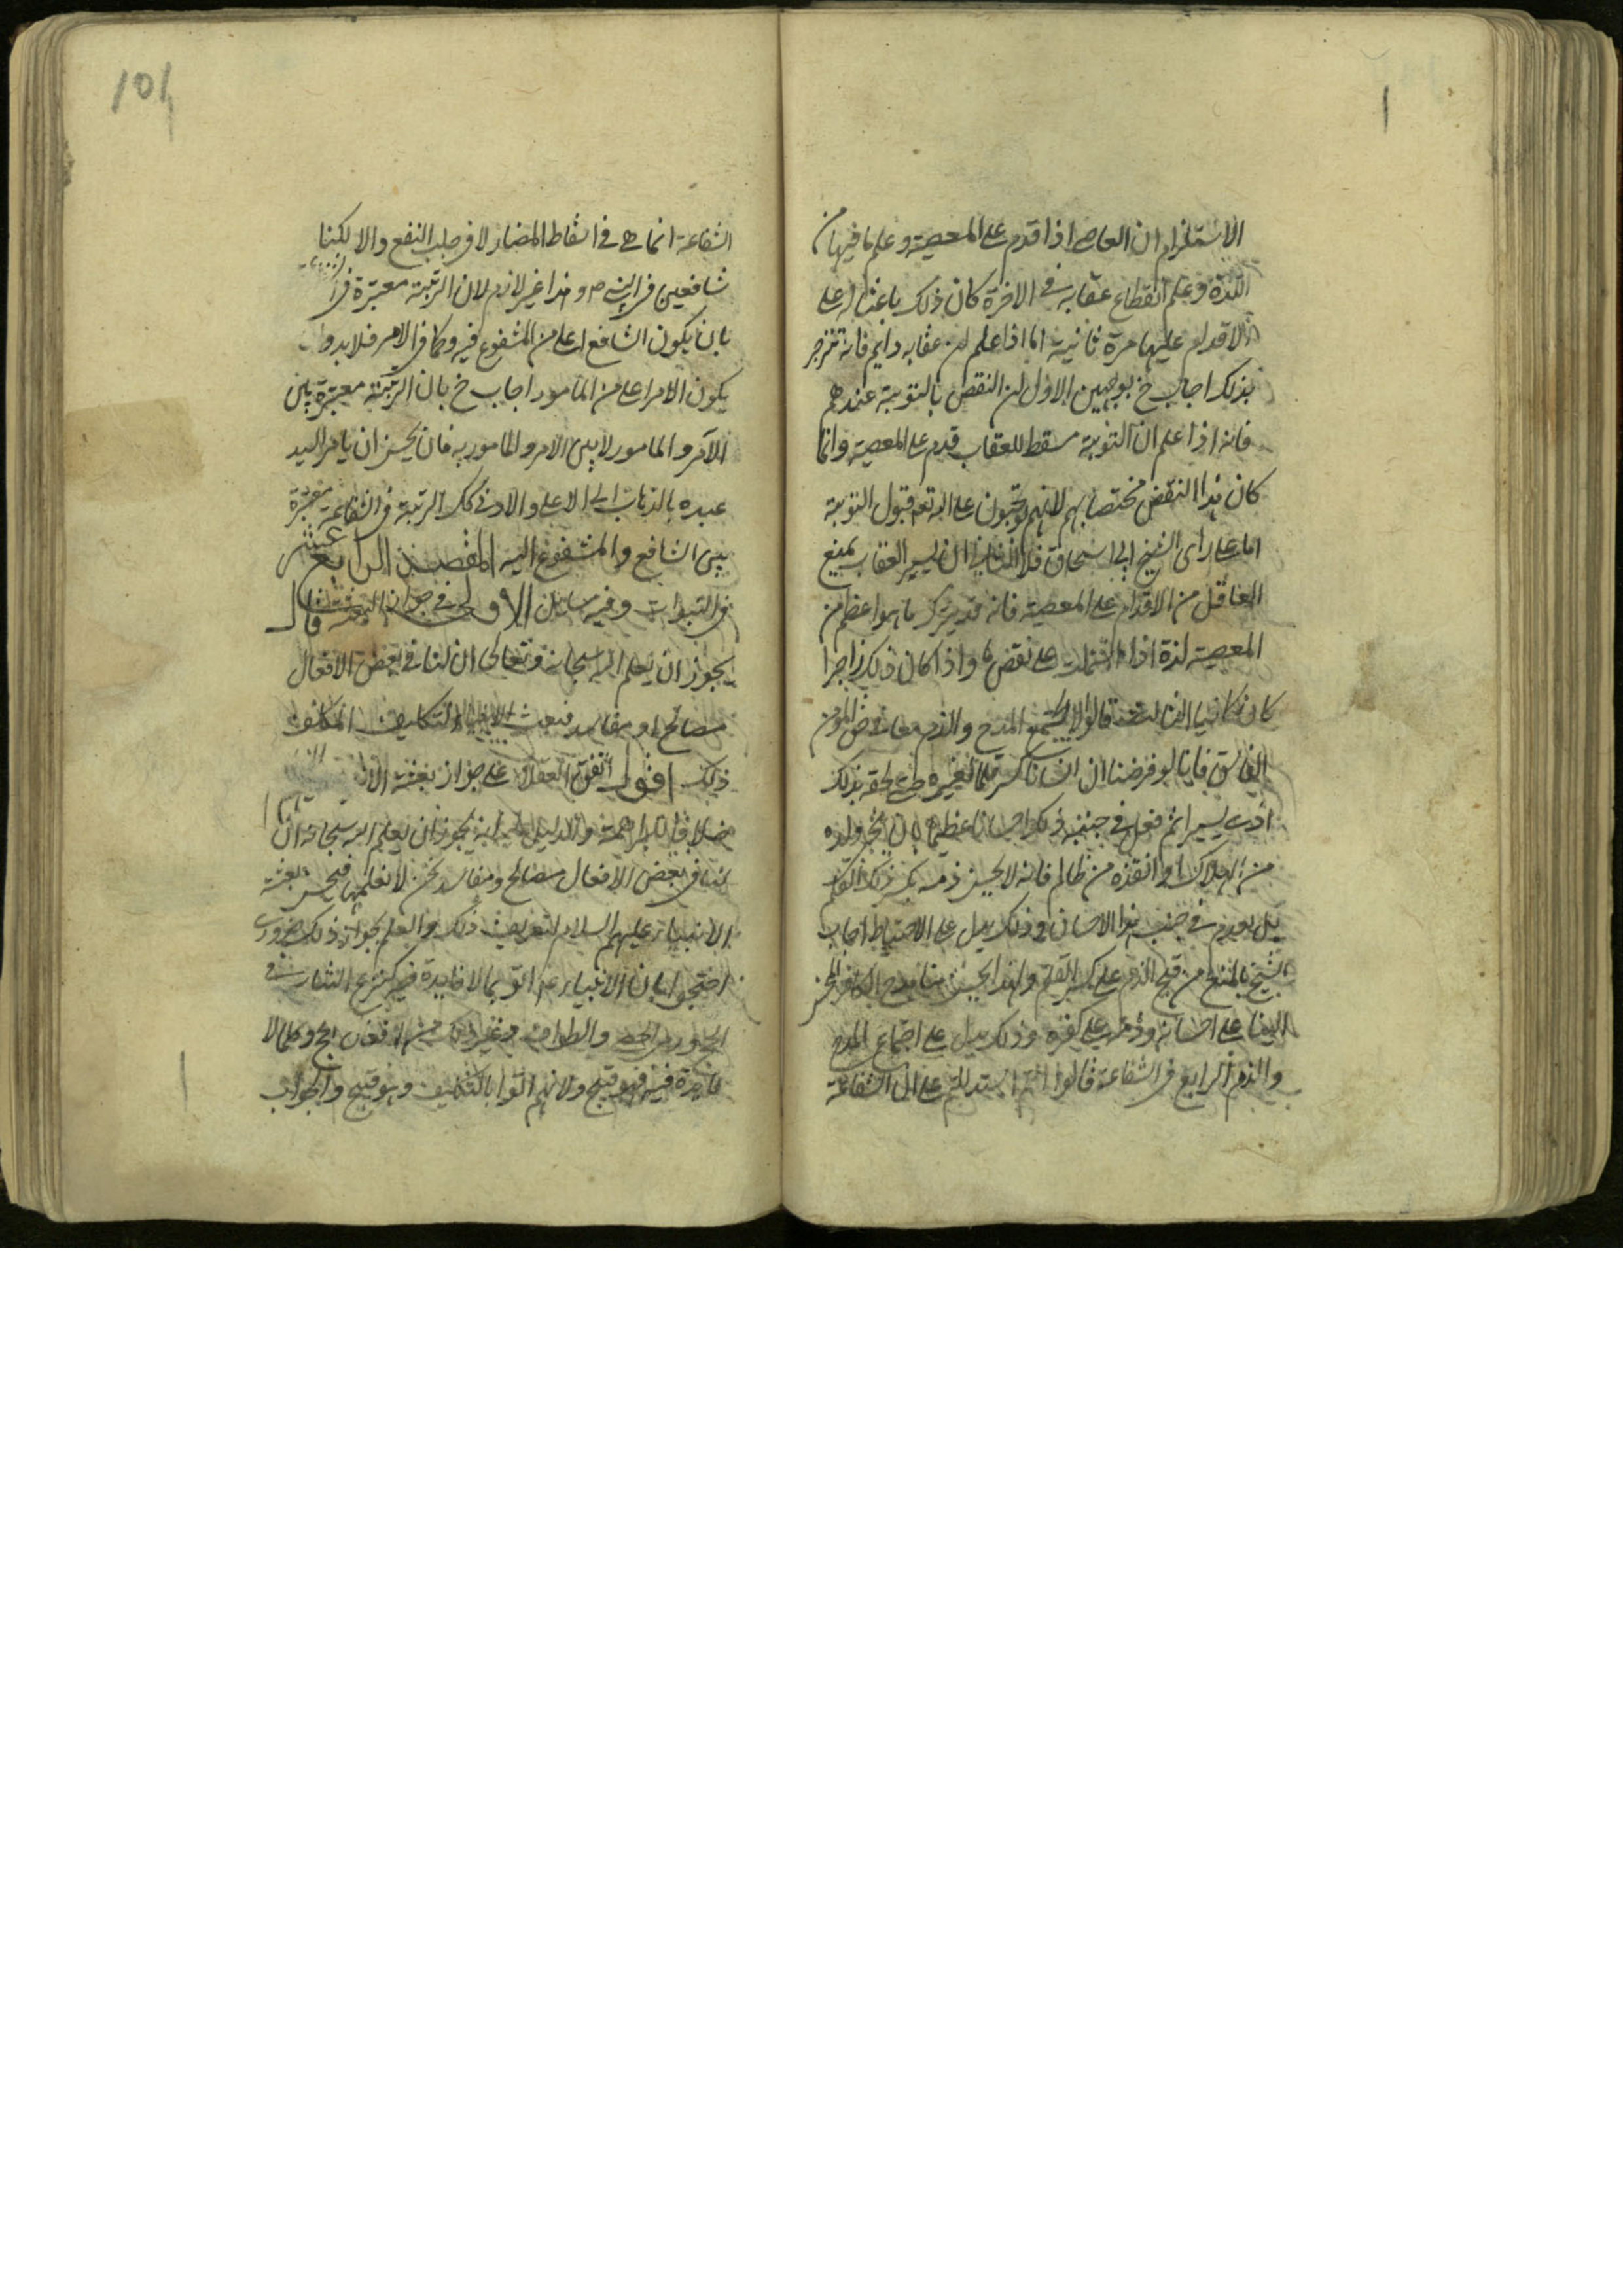 الاستلزام ان العاصى اذا قدم على المعصية وعلم ما فيها من
اللذة وعلم انقطاع عقابه فى الاخرة كان ذلك باعثا له على
الاقدام عليها مرة ثانية اما اذا علم ان عقابه دايم فانه تنزجر
بذلك اجاب خ بوجهين الاول ان النقض بالتوبة عندهم
فانه اذا علم ان التوبة مسقط للعقاب قدم على المعصية وانما
كان هذا النقض مختصا بهم لانهم يوجبون على الله تعم قبول التوبة
اما على راى الشيخ ابى اسحاق فلا الثانى ان يسير العقاب يمنع
العاقل من الاقدام على المعصية فانه قد يترك ما هو اعظم من
المعصية لذة اذا اشتملت على نقص ما واذا كان ذلك زاجرا
كان كافيا الثالث قالوا لا يجتمع المدح والذم معا فى حق المؤمن
الفاسق فانا لو فرضنا ان انسانا كسر قلما لغيره لحقه بذلك
اذى يسير ثم فعل فى جنب ذلك احسانا عظيما بان نجى ولده
من الهلاك او انقذه من ظالم فانه لا يحسن ذمه بكسر ذلك القلم
بل يعدم فى جنب هذا الاحسان وذلك يدل على الاحتياط اجاب
الشيخ بالمنع من قبح الذم على كسر القلم ولهذا يحسن منا مدح الكافر المحسن
الينا على احسانه وذمه على كفره وذلك يدل على اجتماع المدح
والذم الرابع فى الشفاعة قالوا انتم استدللتم على ان الشفاعة
101
الشفاعة انما هى فى اسقاط المضار لا فى جلب النفع والا لكنا
شافعين فى النبى ص وهذا غير لازم لان الرتبة معتبرة فى
بان يكون الشافع اعلى من المشفوع فيه وكما فى الامر فلا بد وان
يكون الامر اعلى من المامور اجاب خ بان الرتبة معتبرة بين
الآمر والمامور لا بين الامر والمامور به فانه يحسن ان يامر السيد
عبده بالذهاب الى الاعلى والادنى كك الرتبة فى الشفاعة معتبرة
بين الشافع والمشفوع اليه المقصد الرابع عشر
فى النبوات وفيه مسائل الاولى فى جواز البعثة قال
يجوز ان يعلم الله سبحانه وتعالى ان لنا فى بعض الافعال
مصالح او مفاسد فيبعث الانبياء المكلف
ذلك اقول اتفق العقلاء على جواز بعثة الانبياء
خلافا للبراهمة والدليل عليه انه يجوز ان يعلم الله سبحانه ان
لنا فى بعض الافعال مصالح ومفاسد نحن لا نعلمها فيحسن بعثة
الانبياء عليهم السلام لتعريف ذلك والعلم بجواز ذلك ضرورى
احتجوا بان الانبياء عم اتوا بما لا فايدة فيه كنزع الثياب فى
الحج ورمى الحصى والطواف وغير ذلك من افعال الحج وكلما لا
فايدة فيه فهو قبيح ولانهم اتوا بالتكليف وهو قبيح والجواب